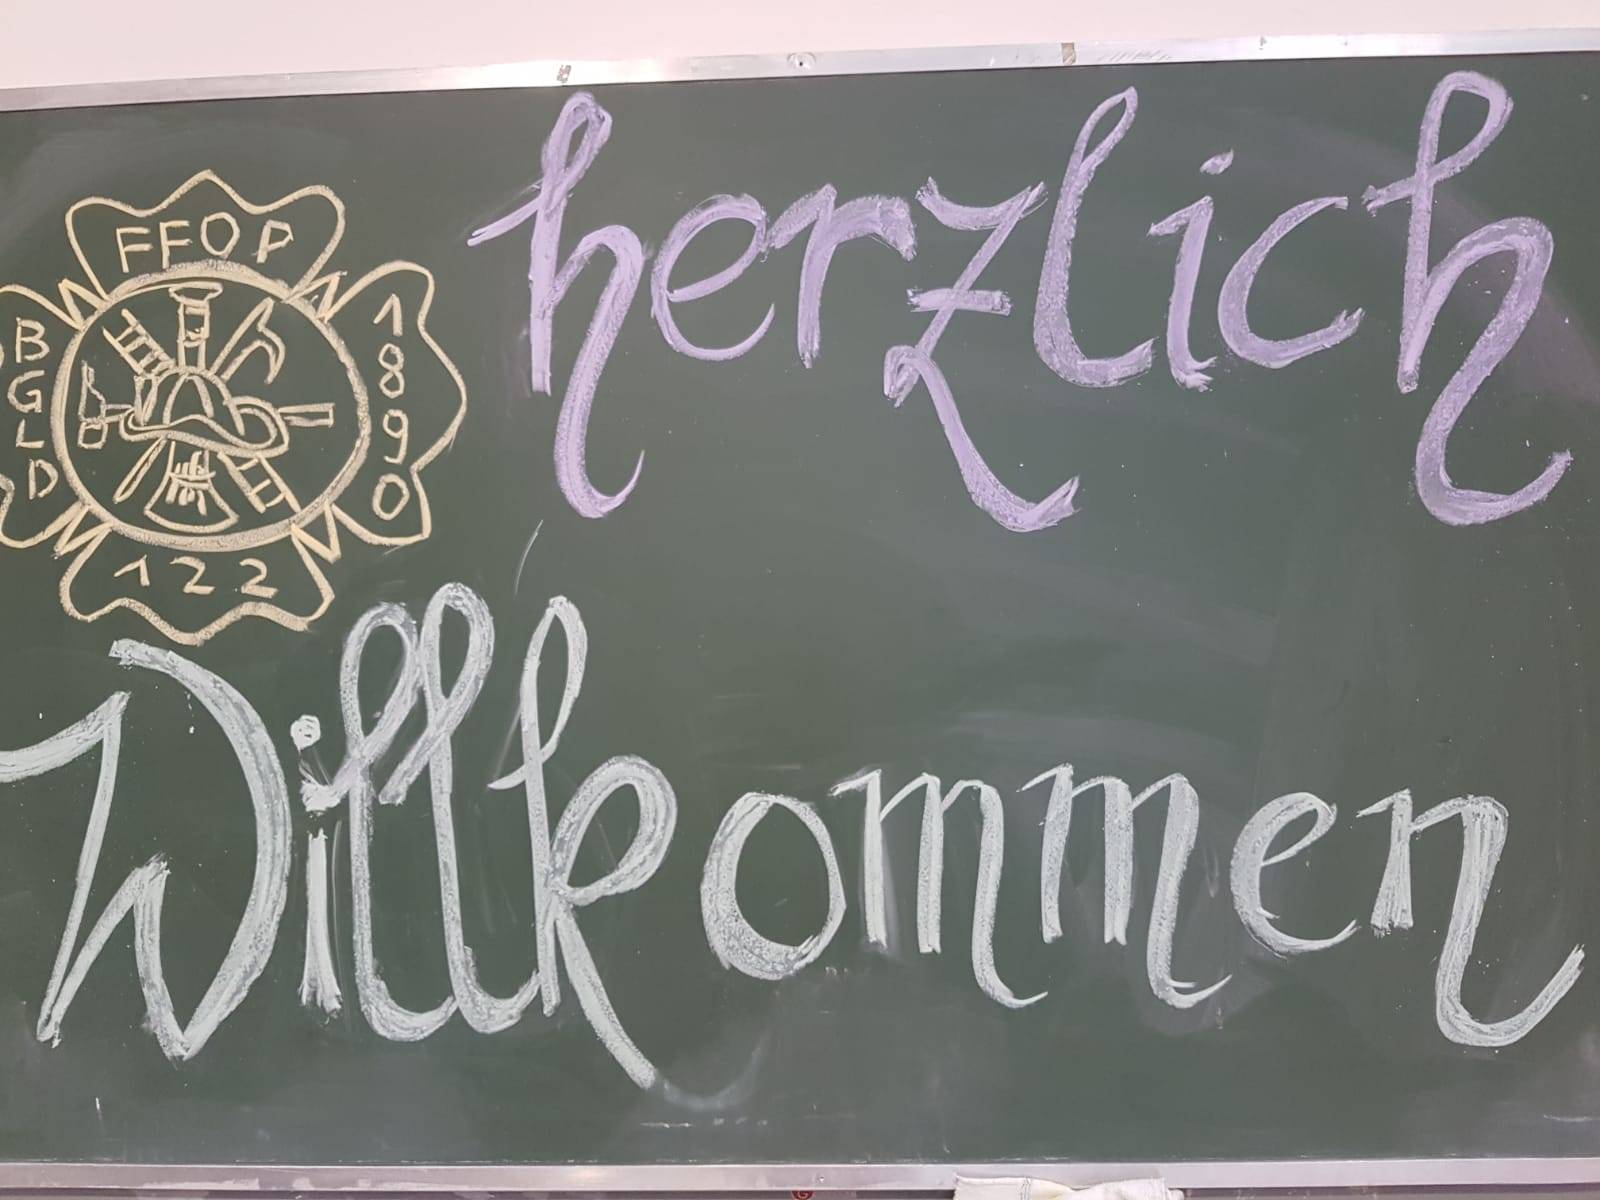 FFOP
BGLD
1890
122
herzlich
Willkommen